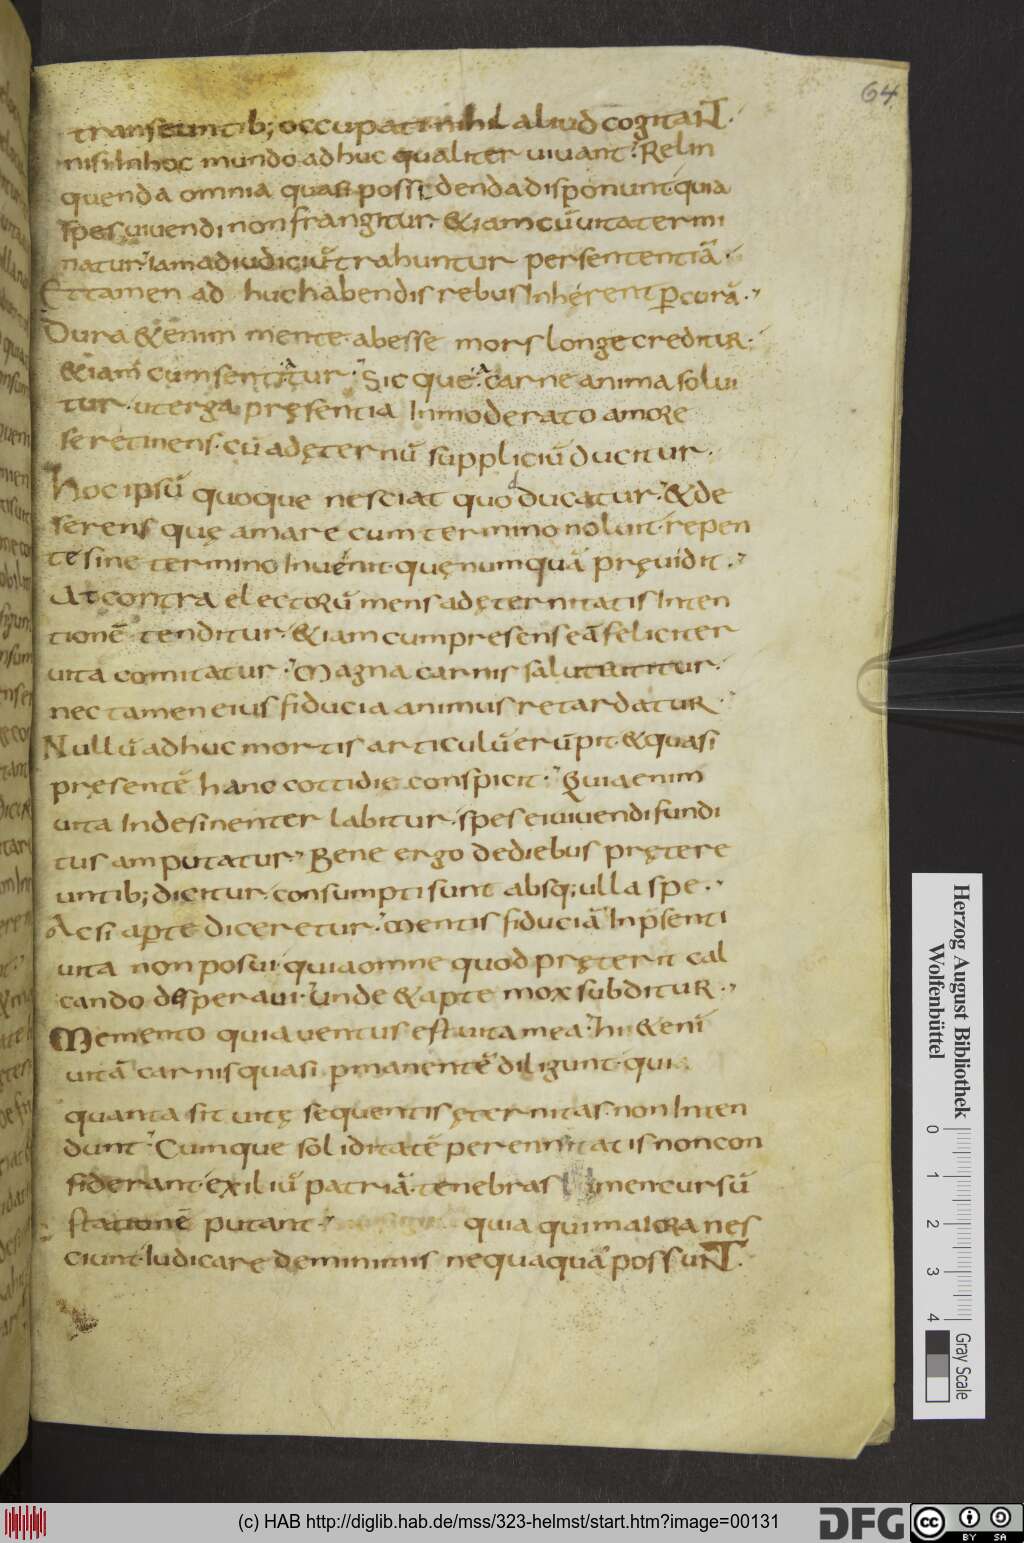 64
transeuntib; occupati nihil aliud cogitant.
nisi In hoc mundo adhuc qualiter uiuant. Relin
quenda omnia quasi possidenda disponunt. quia
spes uiuendi non frangitur. &iam cū uita termi
natur. iam ad iudiciū trahuntur per sententiā.
Et tamen ad huc habendis rebus Inherent p curā.
Dura &enim mente. abesse mors longe creditur.
&iam cum sentitur. Sicque carne anima solui
tur. ut erga pręsentia Inmoderato amore
se retinens. cū ad ęternū suppliciū ducitur.
hoc ipsū quoque nesciat quo ducatur. &de
serens quę amare cum termino noluit. repen
te sine termino Inuenit. quę numquā pręuidit.
At contra electorū mens ad ęternitatis Inten
tionē tenditur. &iam cum presens eā feliciter
uita comitatur. Magna carnis salute utitur.
nec tamen eius fiducia animus retardatur.
Nullū adhuc mortis articulū erūpit. &quasi
pręsentē hanc cottidie conspicit. Quia enim
uita Indesinenter labitur. spes ei uiuendi fundi
tus amputatur. Bene ergo de diebus pretere
untib; dicitur. consumpti sunt absq; ulla spe.
Acsi apte diceretur. Mentis fiduciā In psenti
uita non posui. quia omne quod pręterit cal
cando desperaui. Unde &apte mox subditur.
Memento quia uentus est uita mea. hi &eni
uitā carnis quasi pmanentē diligunt. quia
quanta sit uitę sequentis ęternitas. non Inten
dunt. Cumque soliditatē perennitatis non con
siderant. exiliū patriā. tenebras lumen cursū
stationē putant. quia qui maiora nes
ciunt. Iudicare de minimis nequaquā possunt.
Herzog August Bibliothek
Wolfenbüttel
0 1 2 3 4
Gray Scale
(c) HAB http://diglib.hab.de/mss/323-helmst/start.htm?image=00131
DFG
cc BY SA